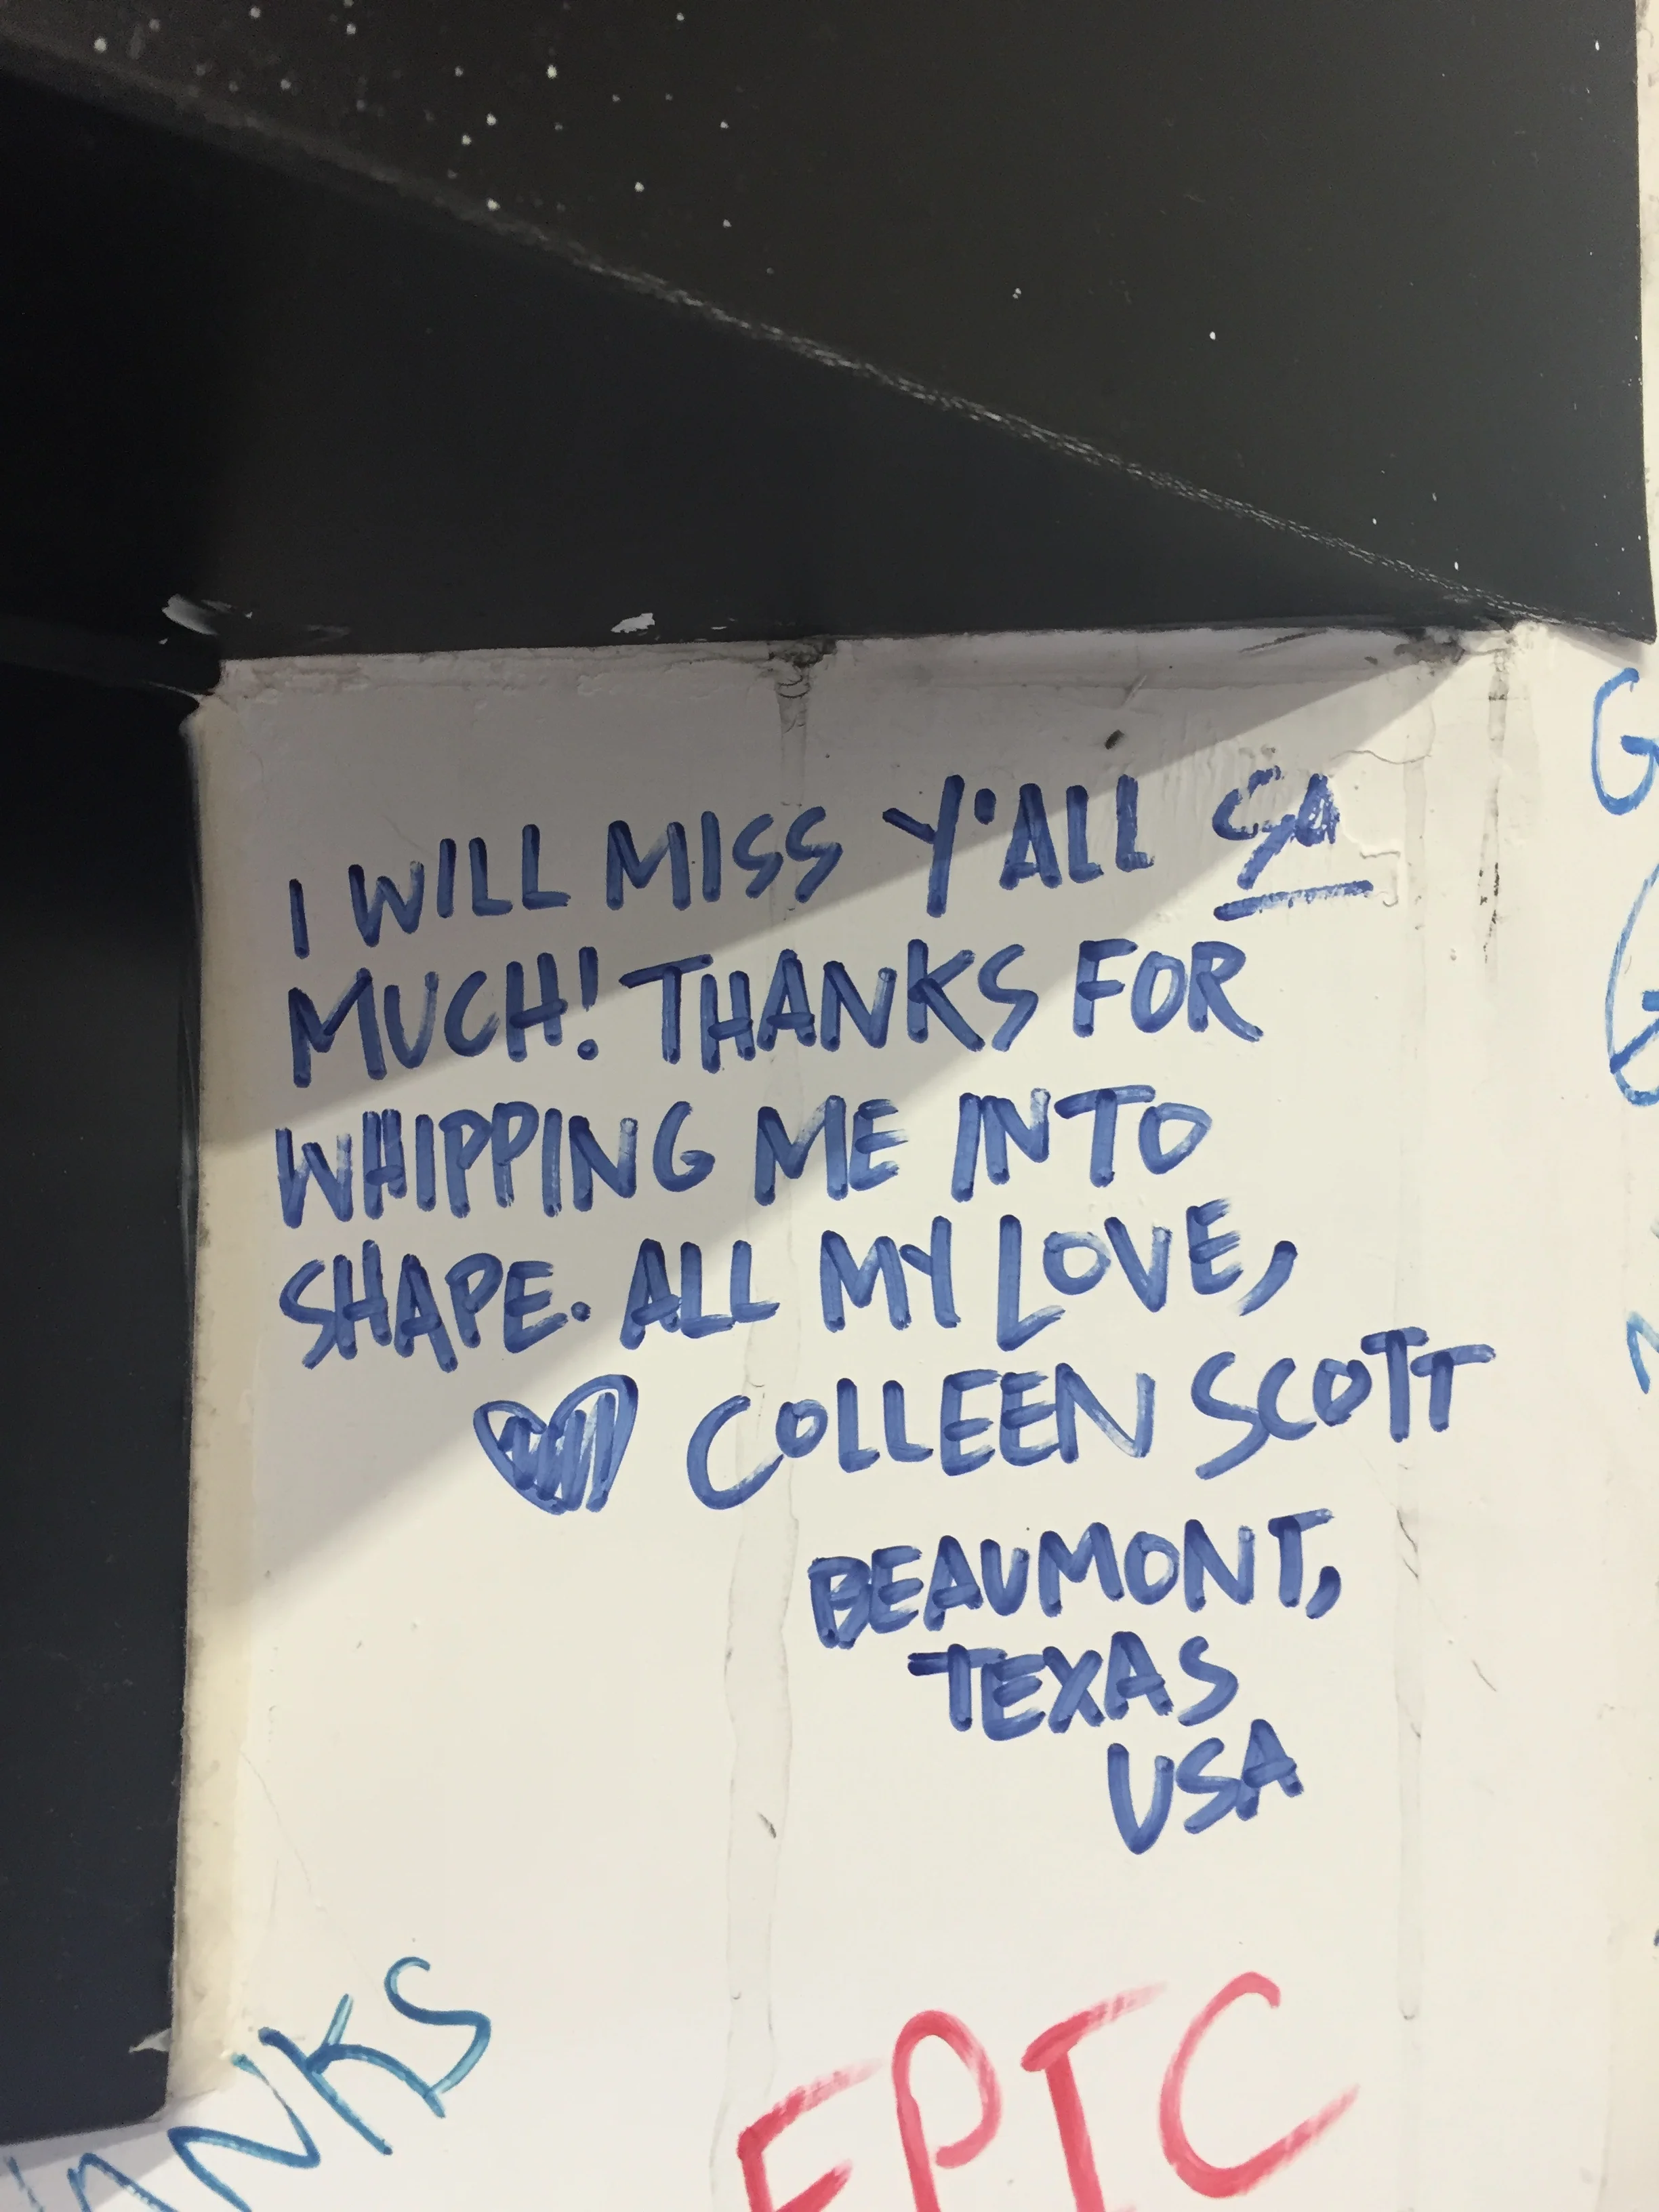 I WILL MISS Y'ALL SO
MUCH! THANKS FOR
WHIPPING ME INTO
SHAPE. ALL MY LOVE,
COLLEEN SCOTT
BEAUMONT,
TEXAS
USA
EPIC